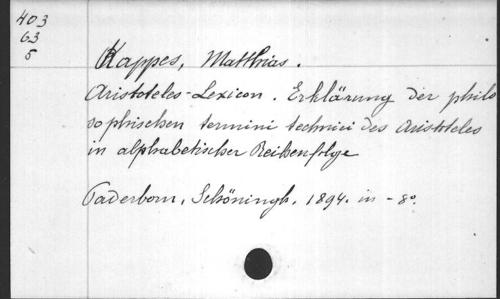 403
63
5
Kappes, Matthias.
Aristoteles-Lexicon. Erklärung der philo
sophischen termini technici des Aristoteles
in alphabetischer Reihenfolge
Paderborn, Schöningh, 1894. in - 8°.